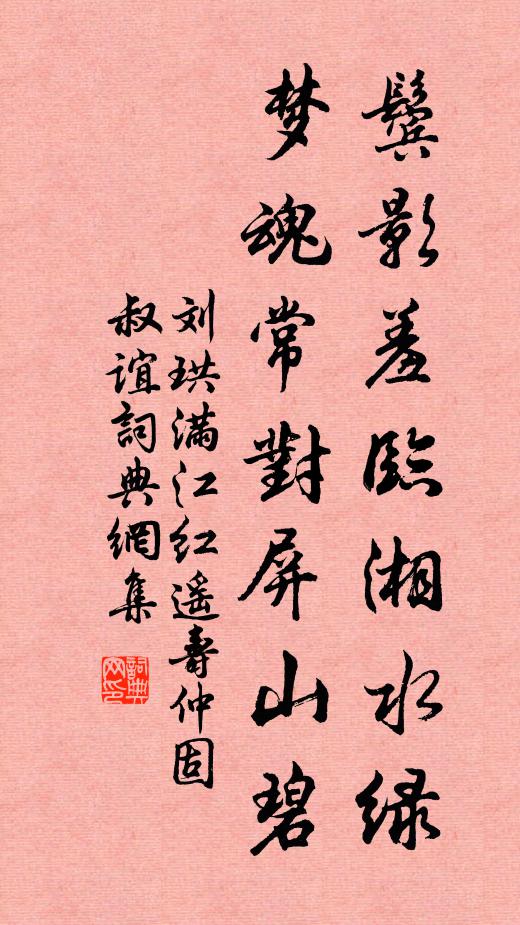 鬓影羞临湘水绿
梦魂常對屏山碧
刘珙满江红遥寿仲固
叔谊詞典網集
詞典
网印